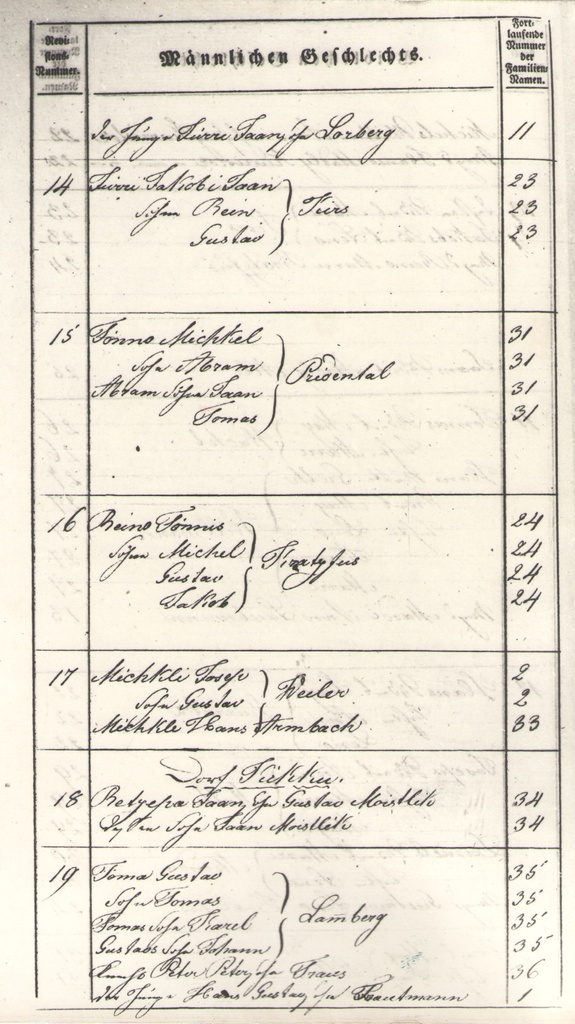 Revisions-Nummer.
Männlichen Geschlechts.
Fortlaufende Nummer der Familien-Namen.
der Junge Jürri Jaan Sohn Lorberg 11
14 Jürri Jakobi Jaan 23
Sohn Rein 23
Gustav 23
15 Tönno Michkel 31
Sohn Abram 31
Abram Sohn Jaan Pridental 31
Tomas 31
16 Reino Tönnis 24
Sohn Michel 24
Gustav 24
Jakob 24
17 Michkli Josep 2
Sohn Gustav Weiler 2
Michkle Hans Armbach 33
Dorf
18 Jaan Sohn Gustav Moistlik 34
Dessen Sohn Jaan Moistlik 34
19 Toma Gustav 35
Sohn Tomas 35
Tomas Sohn Karel Lamberg 35
Gustavs Sohn Johann 35
Knecht Peter Peter Sohn 36
der Junge Hans Gustav Sohn 1